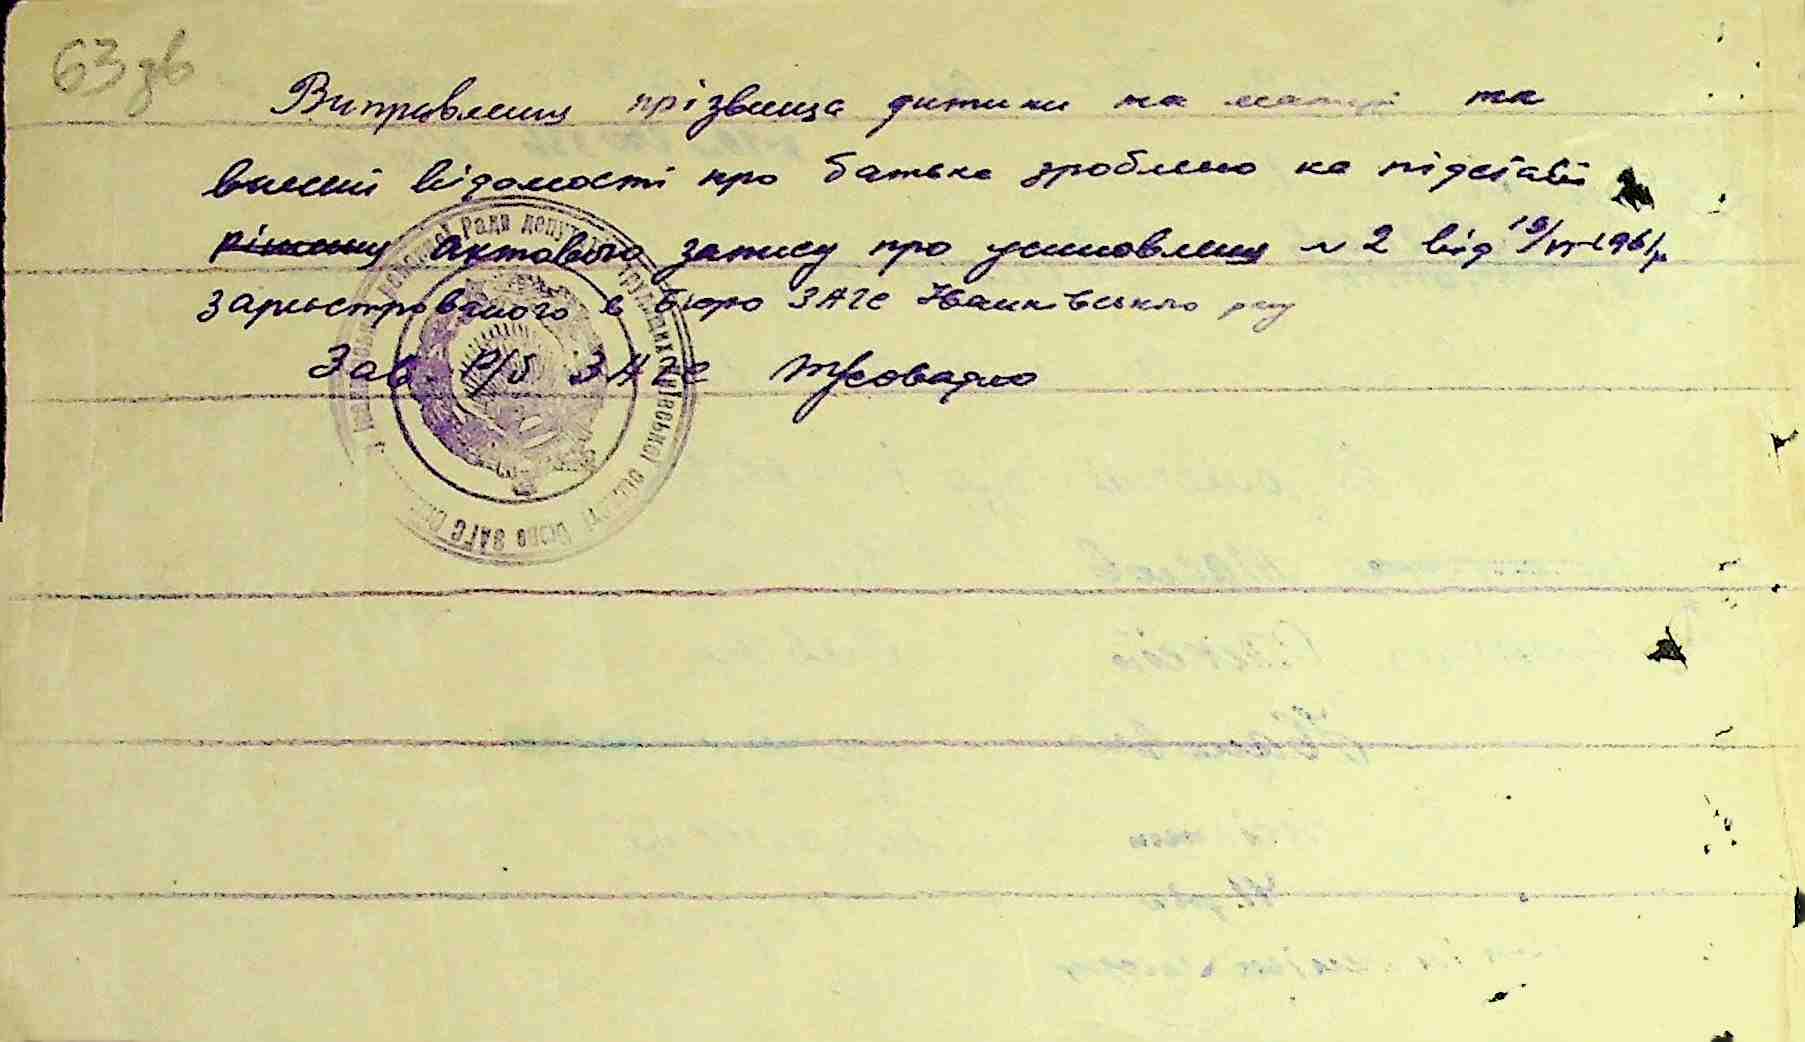 63 зв
Виправлення прізвища дитини та матері та
внесені відомості про батька зроблено на підставі
рішення актового запису про усиновлення № 2 від 19/VI-1961р.
зареєстрованого в бюро ЗАГС Іванківського р-ну
Зав. р/б ЗАГС
Рада депутатів трудящих Київської області Бюро ЗАГС